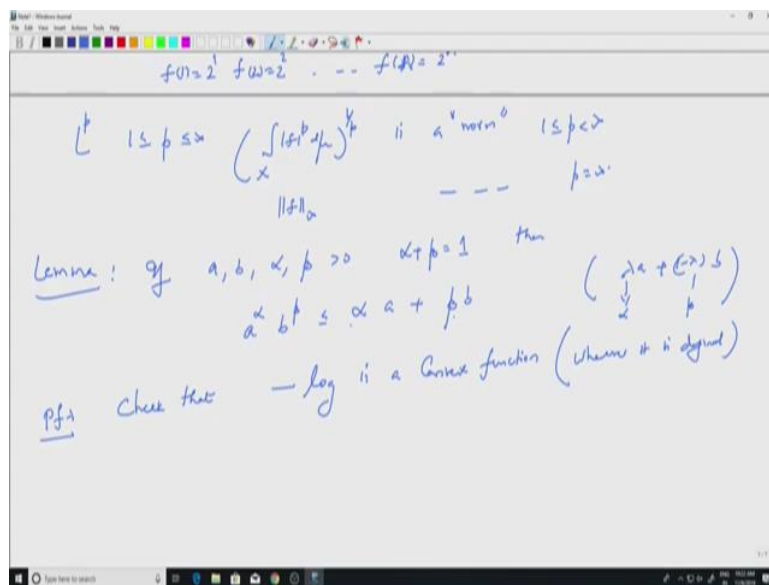 Note1 - Windows Journal
File Edit View Insert Actions Tools Help
f(1)=2¹ f(2)=2² . -- f(n)= 2ⁿ
L^p 1≤ p ≤∞ (∫_X |f|^p dμ)^{1/p} is a "norm" 1≤p<∞
||f||_∞ - - - p=∞.
Lemma: If a, b, α, β >0 α+β=1 then
a^α b^β ≤ α a + β b (λa + (1-λ) b)
α β
Pf: Check that - log is a Convex function (wherever it is defined)
Type here to search